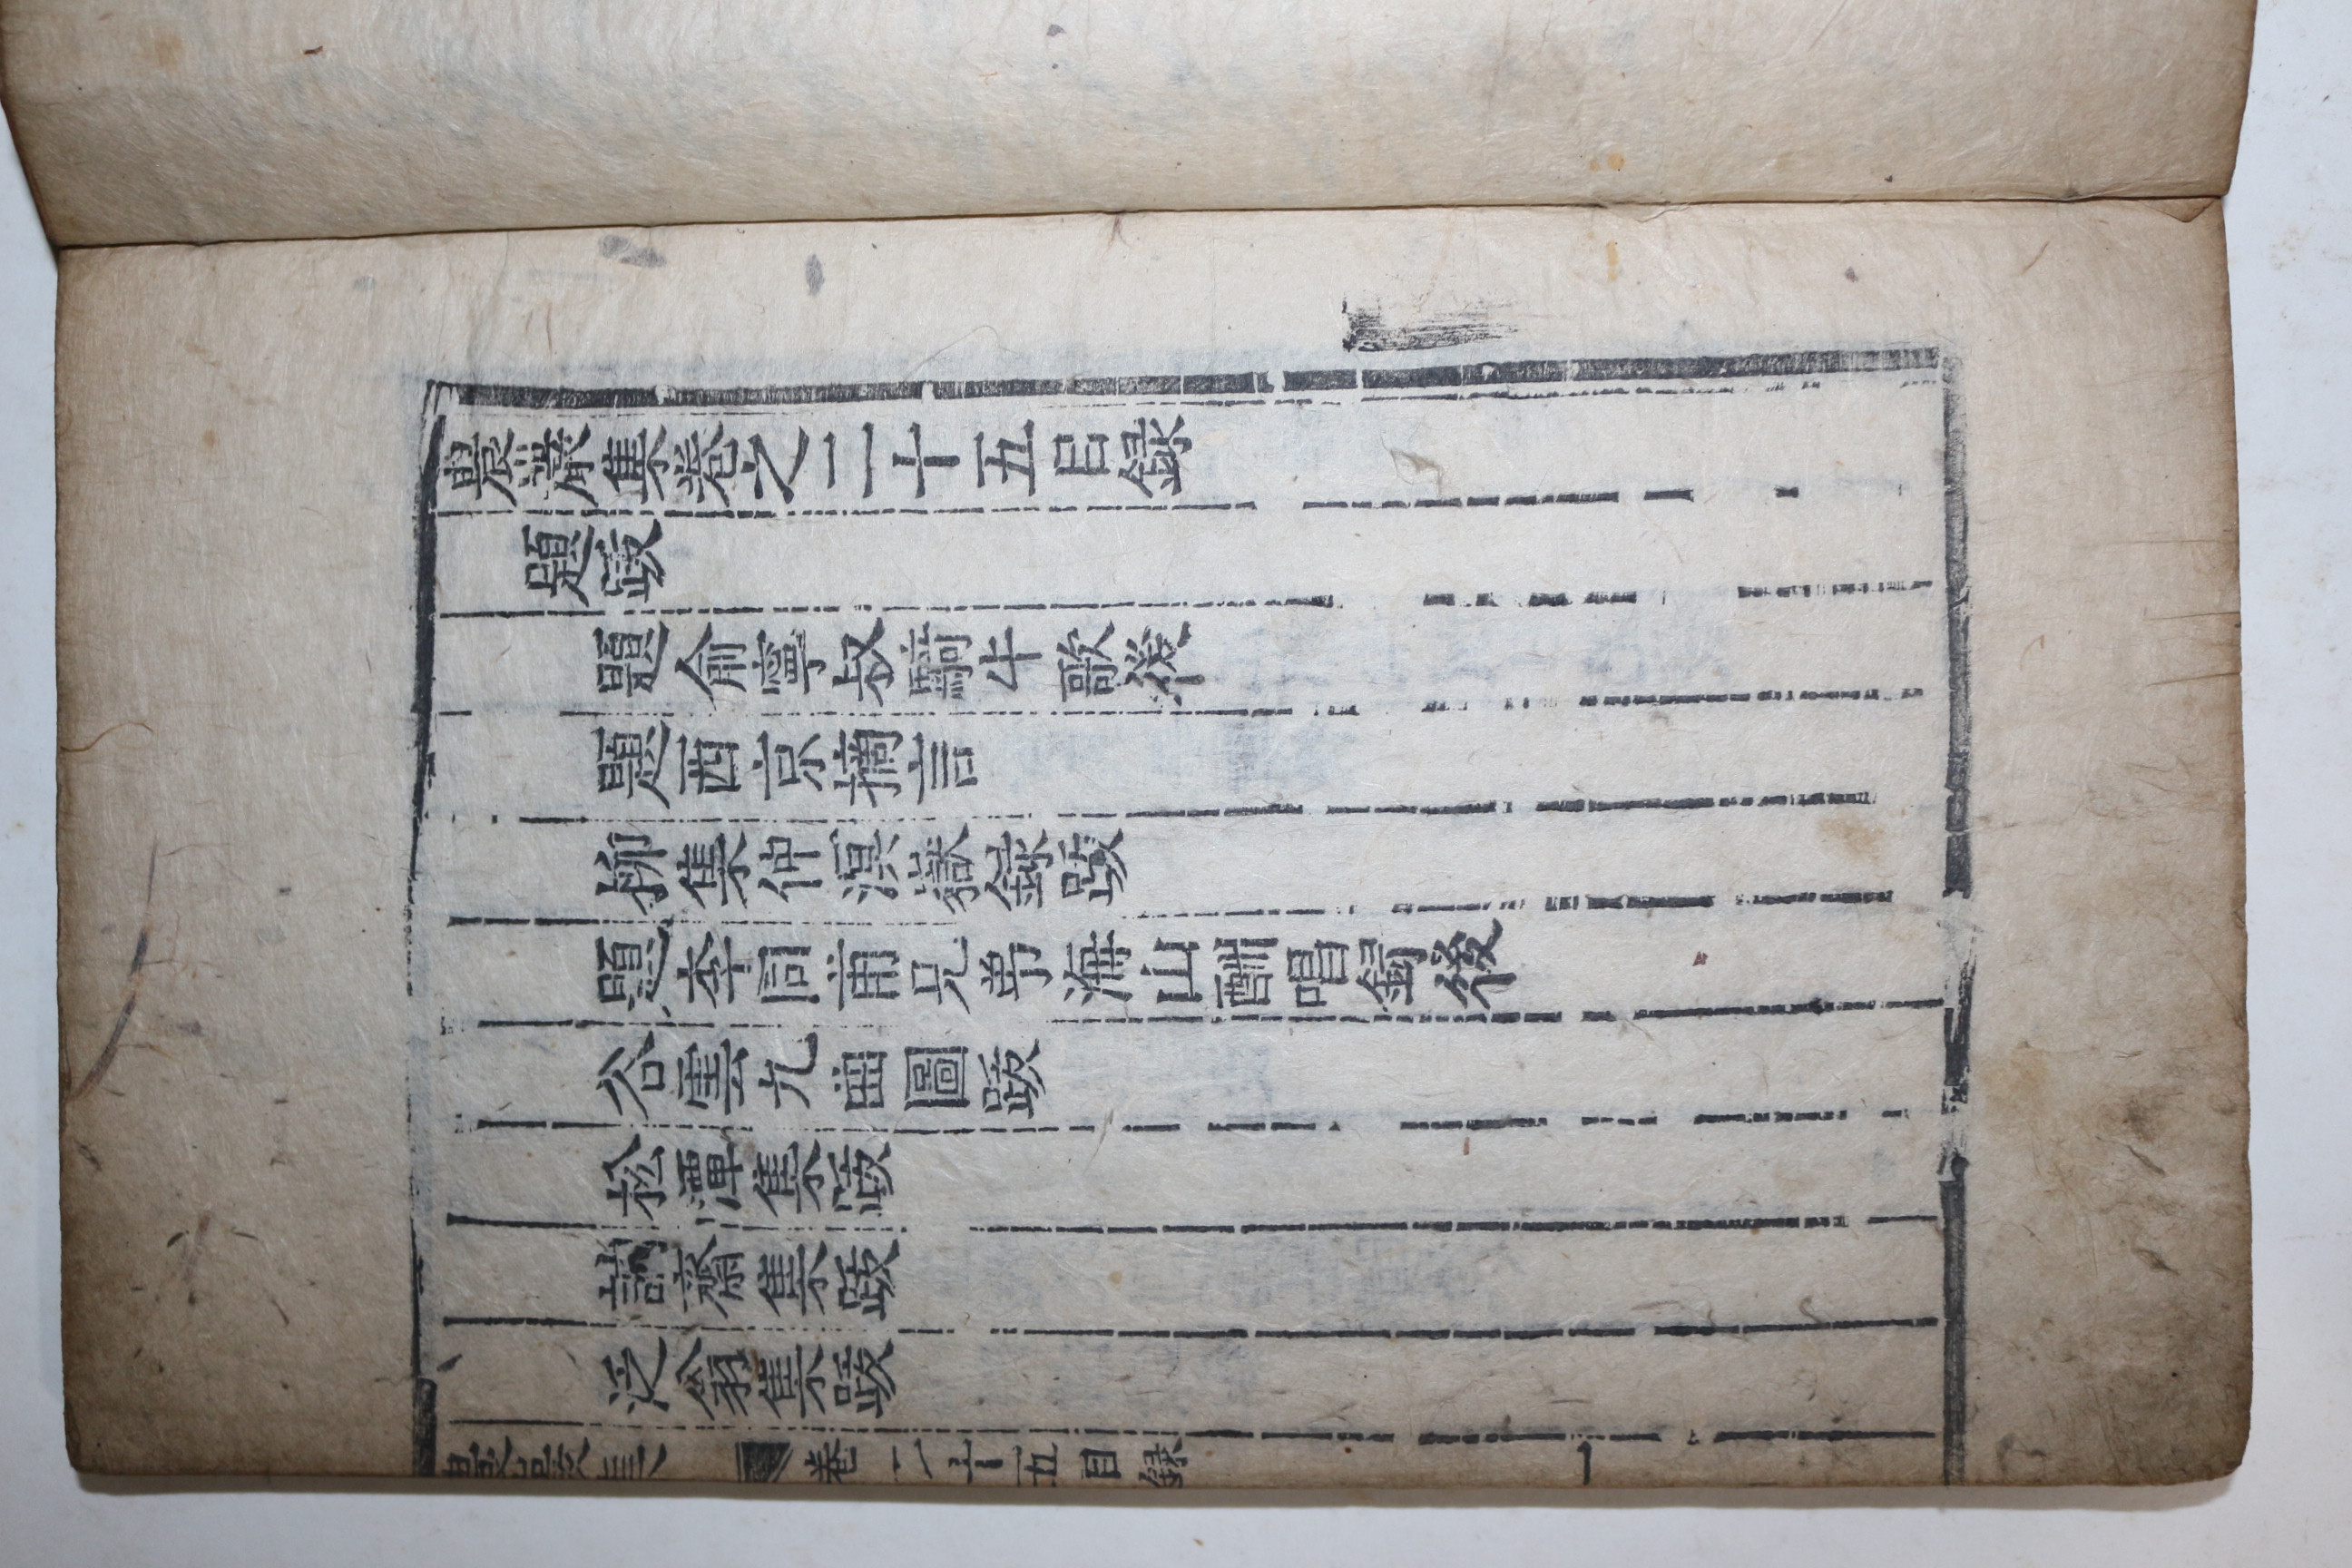 農巖集卷之二十五目録
題跋
題俞寧叔騎牛歌後
題西京摘言
柳集仲溟嶽録跋
題李同甫兄弟海山酬唱録後
谷雲九曲圖跋
松潭集跋
訥齋集跋
泛翁集跋
農巖集 卷二十五目録 一